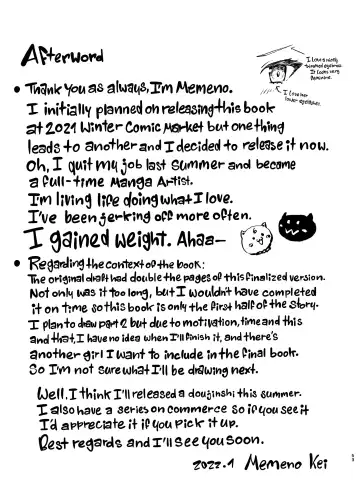 Afterword
I love really
touched eyelashes.
It looks very
feminine.
I love her
lower eyelashes.
• Thank you as always, I'm Memeno.
I initially planned on releasing this book
at 2021 Winter Comic Market but one thing
leads to another and I decided to release it now.
Oh, I quit my job last summer and became
a full-time Manga Artist.
I'm living life doing what I love.
I've been jerking off more often.
I gained weight. Ahaa—
• Regarding the context of the book:
The original draft had double the pages of this finalized version.
Not only was it too long, but I wouldn't have completed
it on time so this book is only the first half of the story.
I plan to draw part 2 but due to motivation, time and this
and that, I have no idea when I'll finish it, and there's
another girl I want to include in the final book.
So I'm not sure what I'll be drawing next.
Well, I think I'll released a doujinshi this summer.
I also have a series on commerce so if you see it
I'd appreciate it if you pick it up.
Best regards and I'll see you soon.
2022.1 Memeno Kei